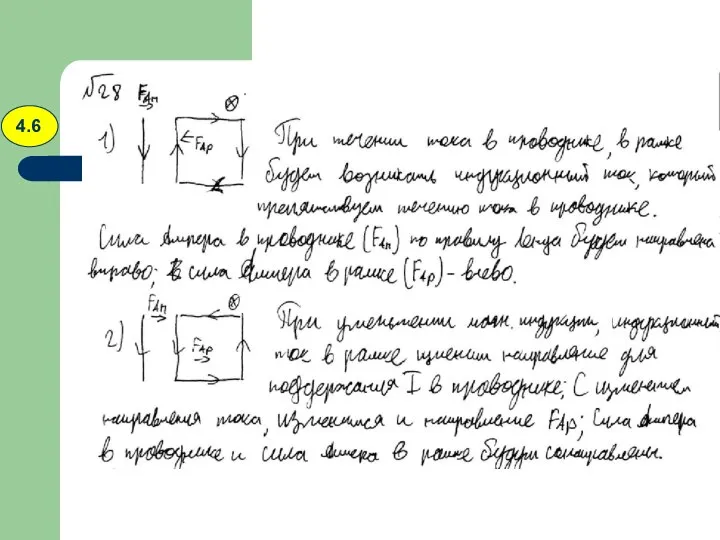 4.6
√28 FАп
1) FАр При течении тока в проводнике, в рамке
будет возникать индукционный ток, который
препятствует течению тока в проводнике.
Сила Ампера в проводнике (FАп) по правилу Ленца будет направлена
вправо; сила Ампера в рамке (FАр) – влево.
FАп
2) FАр При уменьшении магн. индукции, индукционный
ток в рамке изменит направление для
поддержания I в проводнике; С изменением
направления тока, изменится и направление FАр; Сила Ампера
в проводнике и сила в рамке будут сонаправлены.